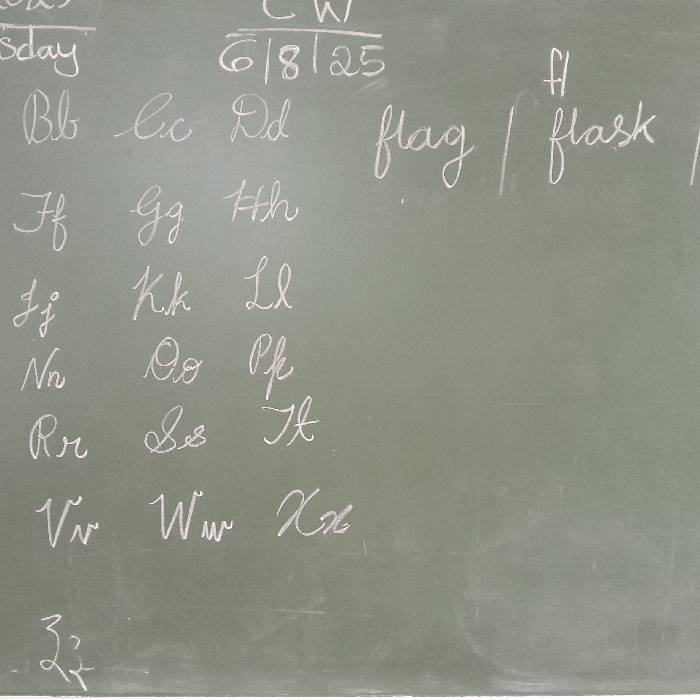 C W
sday 6/8/25
fl
Bb Cc Dd flag / flask /
Ff Gg Hh
Jj Kk Ll
Nn Oo Pp
Rr Ss Tt
Vv Ww Xx
Zz